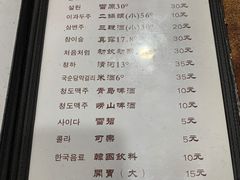 설원 雪原30° 30元
이과두주 二鍋頭(小)56° 10元
삼편주 三鞭酒(小)30° 20元
참이슬 真露17.8° 30元
처음처럼 初飲初樂 30元
청하 清河13° 35元
국순당막걸리 米酒6° 35元
청도맥주 青島啤酒 10元
청도맥주 嶗山啤酒 10元
사이다 雪碧 5元
콜라 可樂 5元
한국음료 韓國飲料 10元
開胃(大) 15元